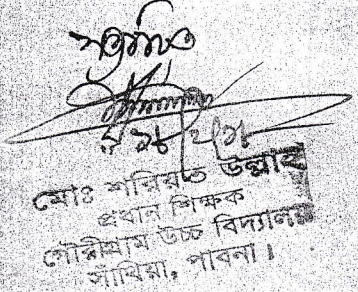 সত্যায়িত
মোঃ শরিয়ত উল্লাহ
প্রধান শিক্ষক
গৌরীগ্রাম উচ্চ বিদ্যালয়
সাঁথিয়া, পাবনা।